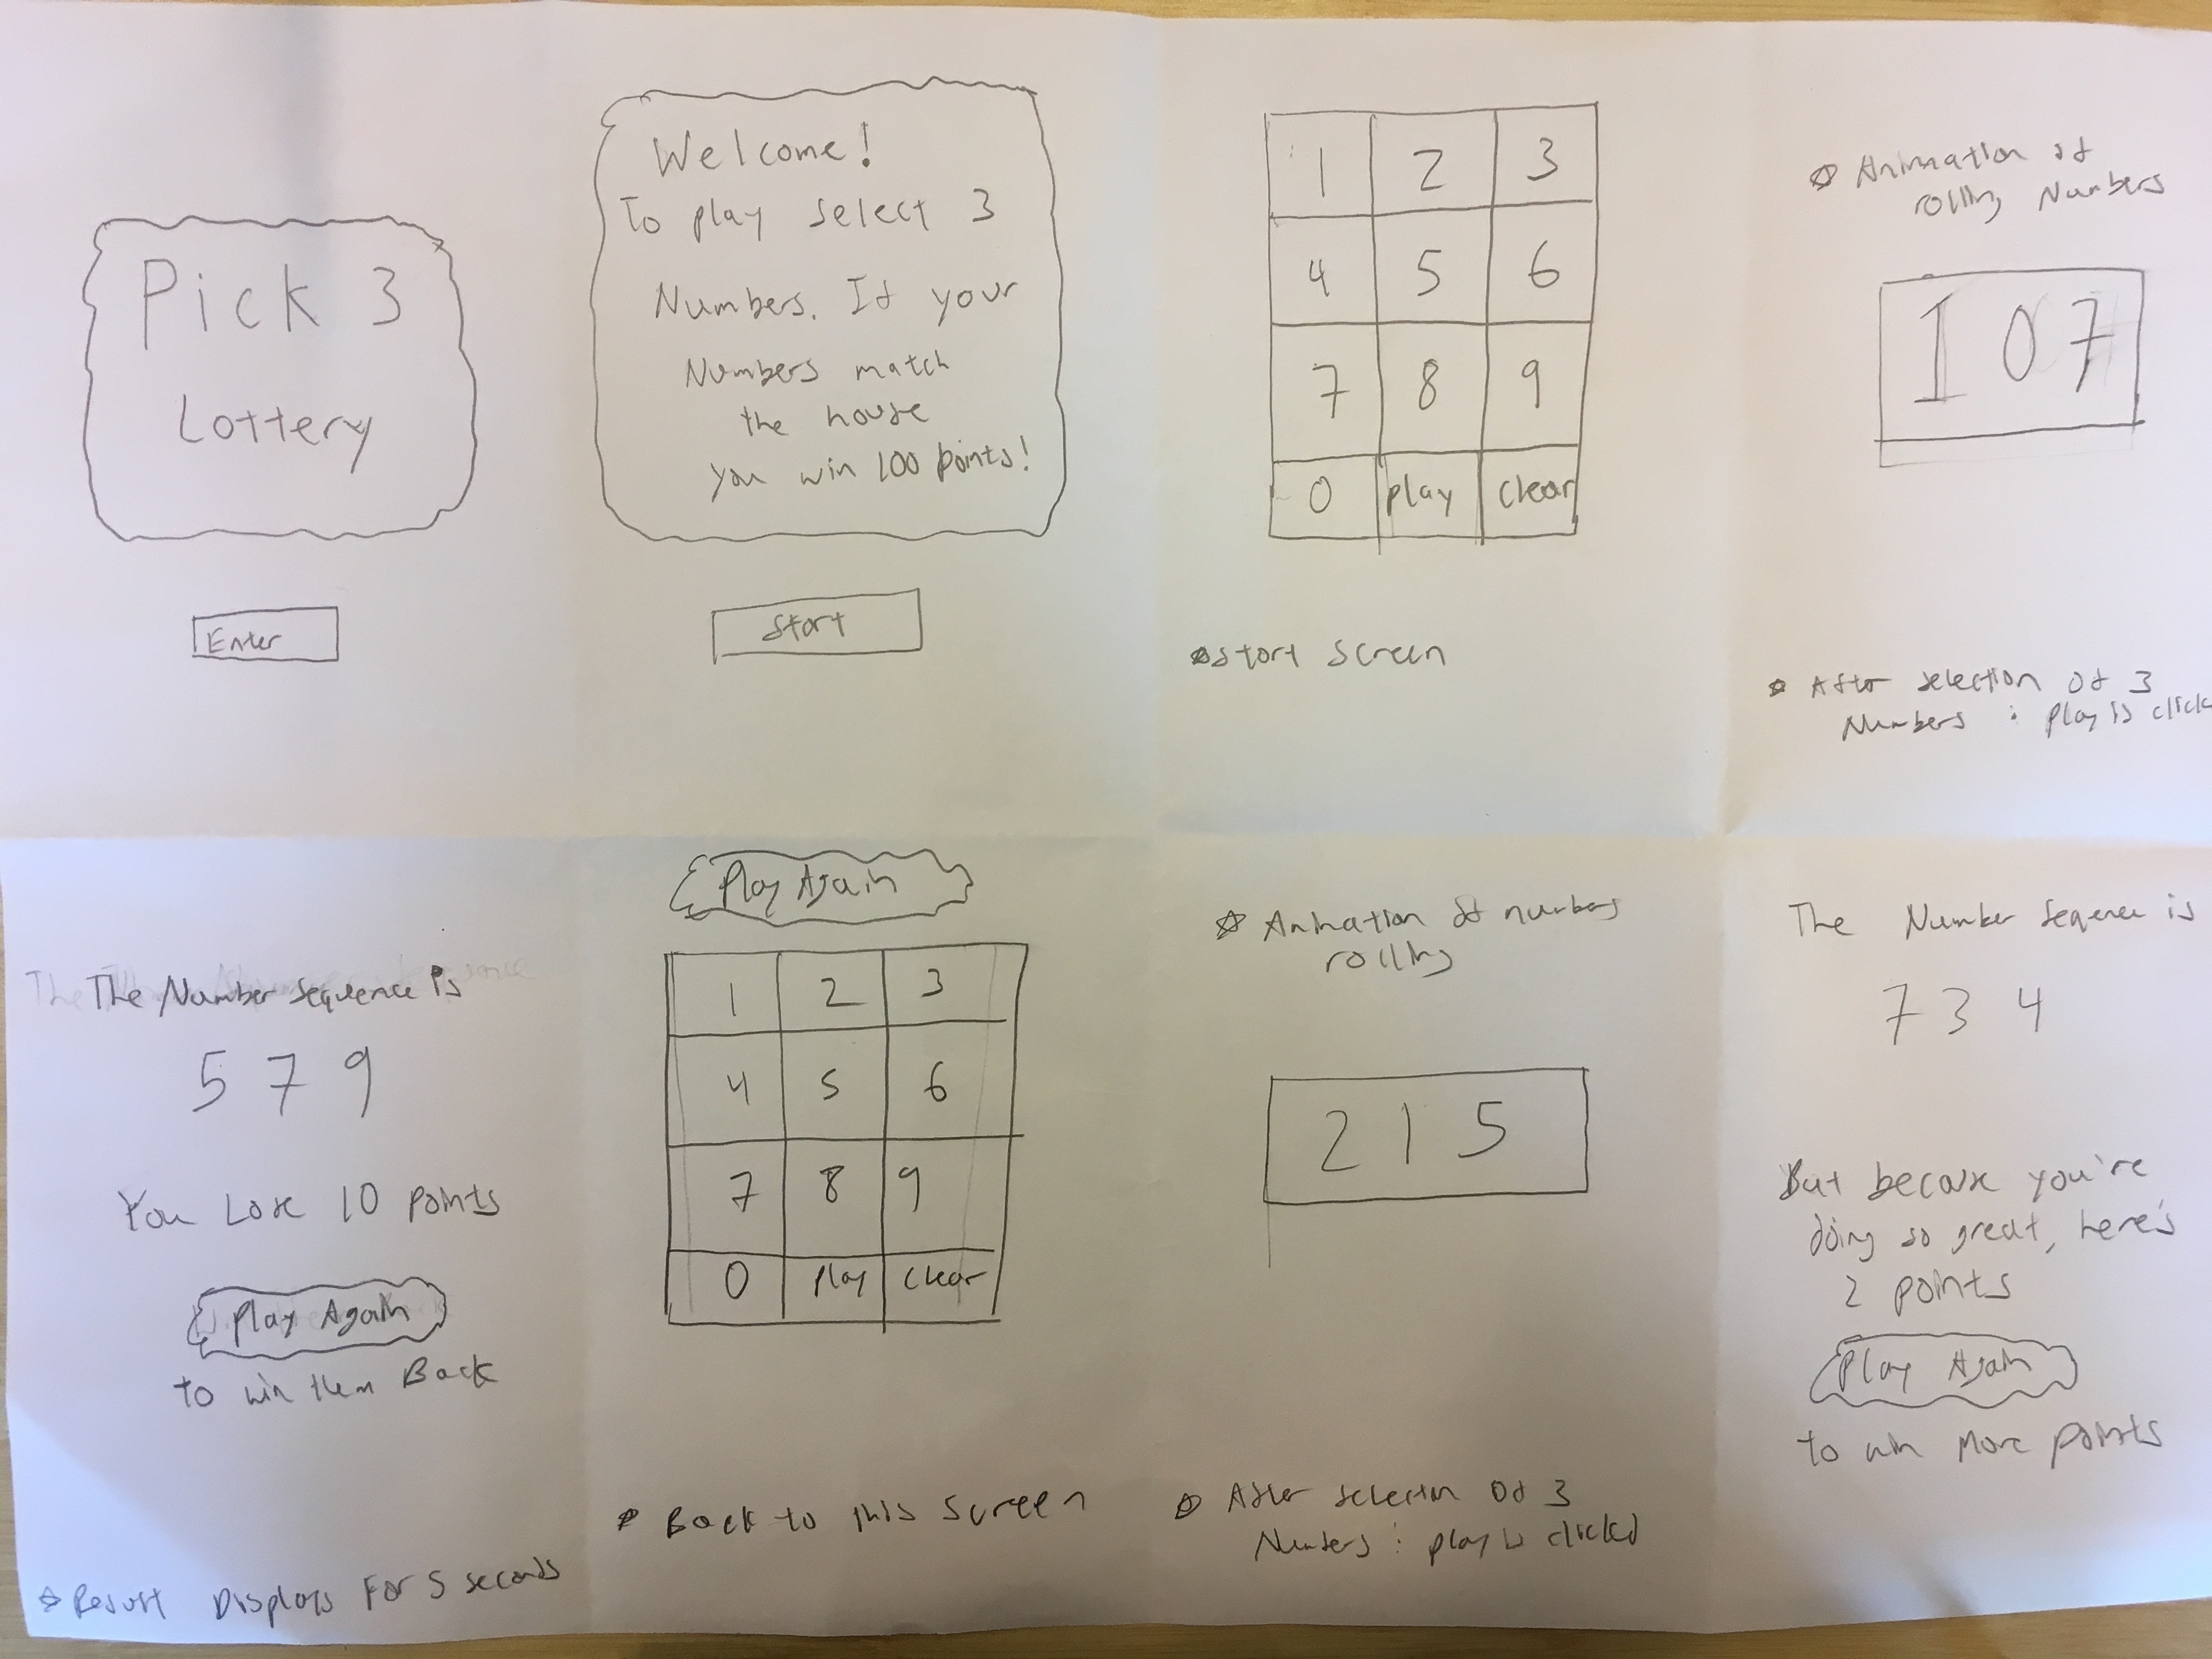 Pick 3
Lottery
Enter
Welcome!
To play select 3
Numbers. If your
Numbers match
the house
you win 100 points!
Start
1 2 3
4 5 6
7 8 9
0 play clear
start screen
Animation of
rolling Numbers
1 0 7
After selection of 3
Numbers : play is click
The Number sequence is
5 7 9
You Lose 10 points
Play Again
to win them Back
Result Displays For 5 seconds
Play Again
1 2 3
4 5 6
7 8 9
0 play clear
Back to this screen
Animation of numbers
rolling
2 1 5
After selection of 3
Numbers : play is clicked
The Number sequence is
7 3 4
But because you're
doing so great, here's
2 points
Play Again
to win more points